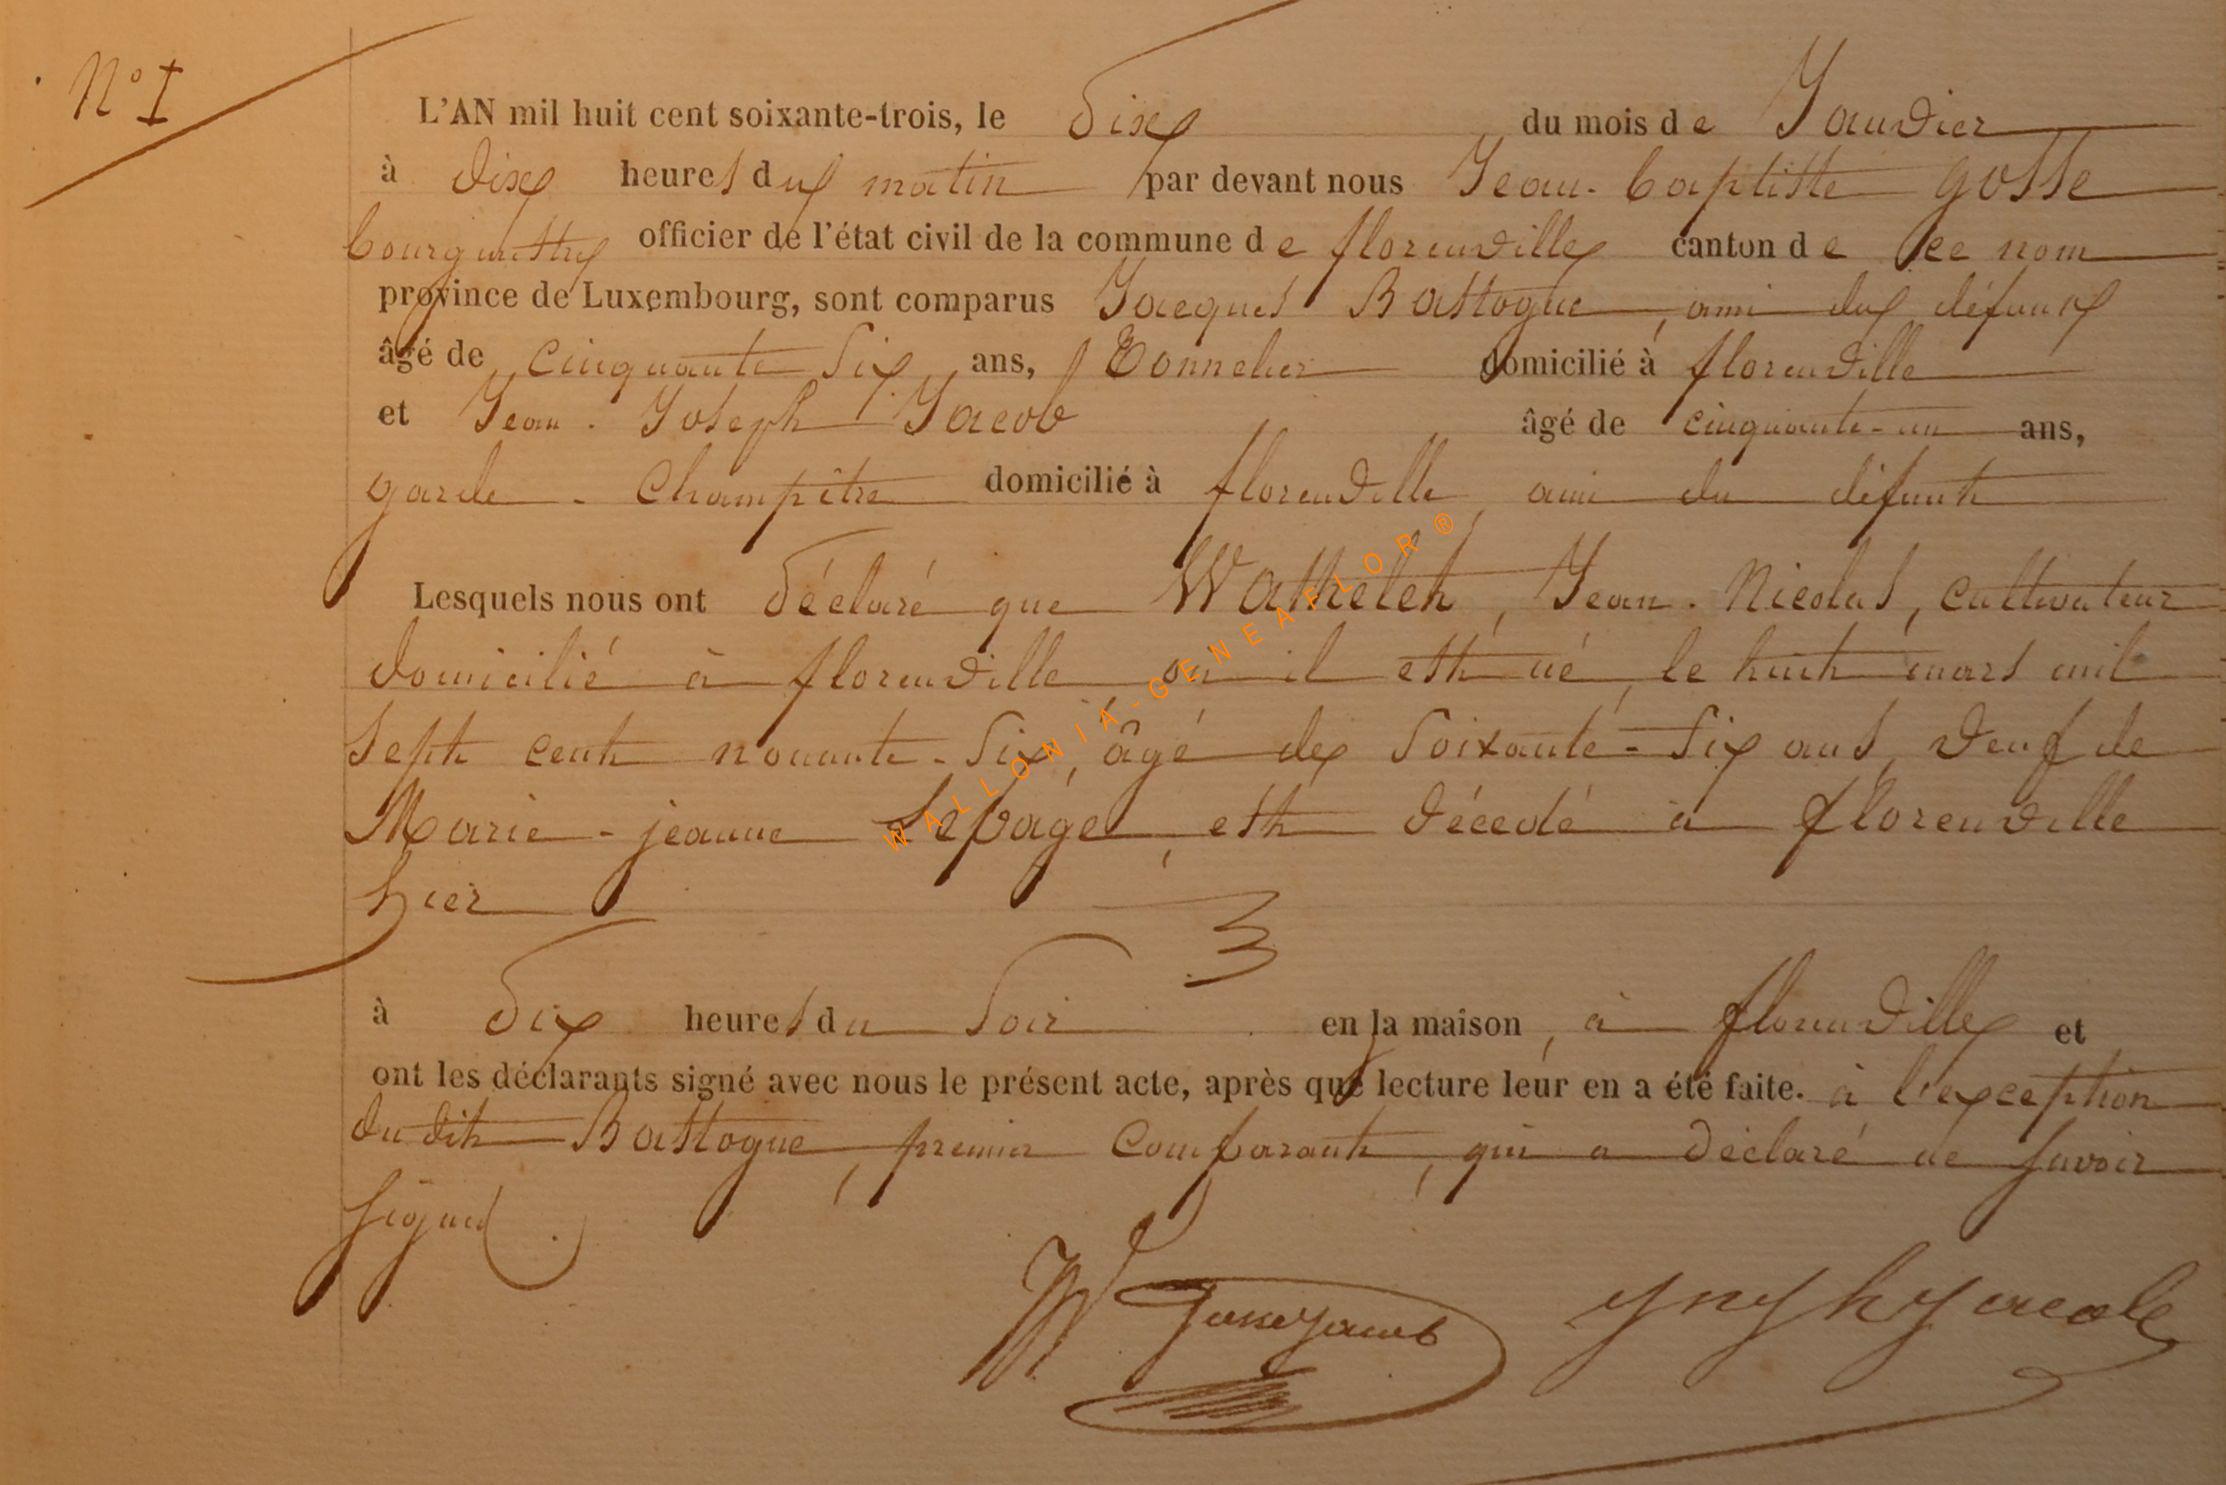 N° I
L'AN mil huit cent soixante-trois, le dix du mois de Janvier
à dix heures du matin par devant nous Jean-baptiste Gosse
bourgmestre officier de l'état civil de la commune de florenville canton de ce nom
province de Luxembourg, sont comparus Jacques Bastogne, ami du défunt
âgé de cinquante six ans, Tonnelier domicilié à florenville
et Jean-Joseph Jacob âgé de cinquante-un ans,
garde-Champêtre domicilié à florenville, ami du défunt
Lesquels nous ont déclaré que Wathelet, Jean-Nicolas, cultivateur
domicilié à florenville, où il est né, le huit mars mil
sept cent nonante-six, âgé de soixante-six ans, veuf de
Marie-jeanne Lepage, est décedé à florenville
hier
à dix heures du soir en sa maison, à florenville et
ont les déclarants signé avec nous le présent acte, après que lecture leur en a été faite. à l'exception
du dit Bastogne, premier comparant, qui a déclaré ne savoir
signer.
WALLONIA-GENEAFLOR®